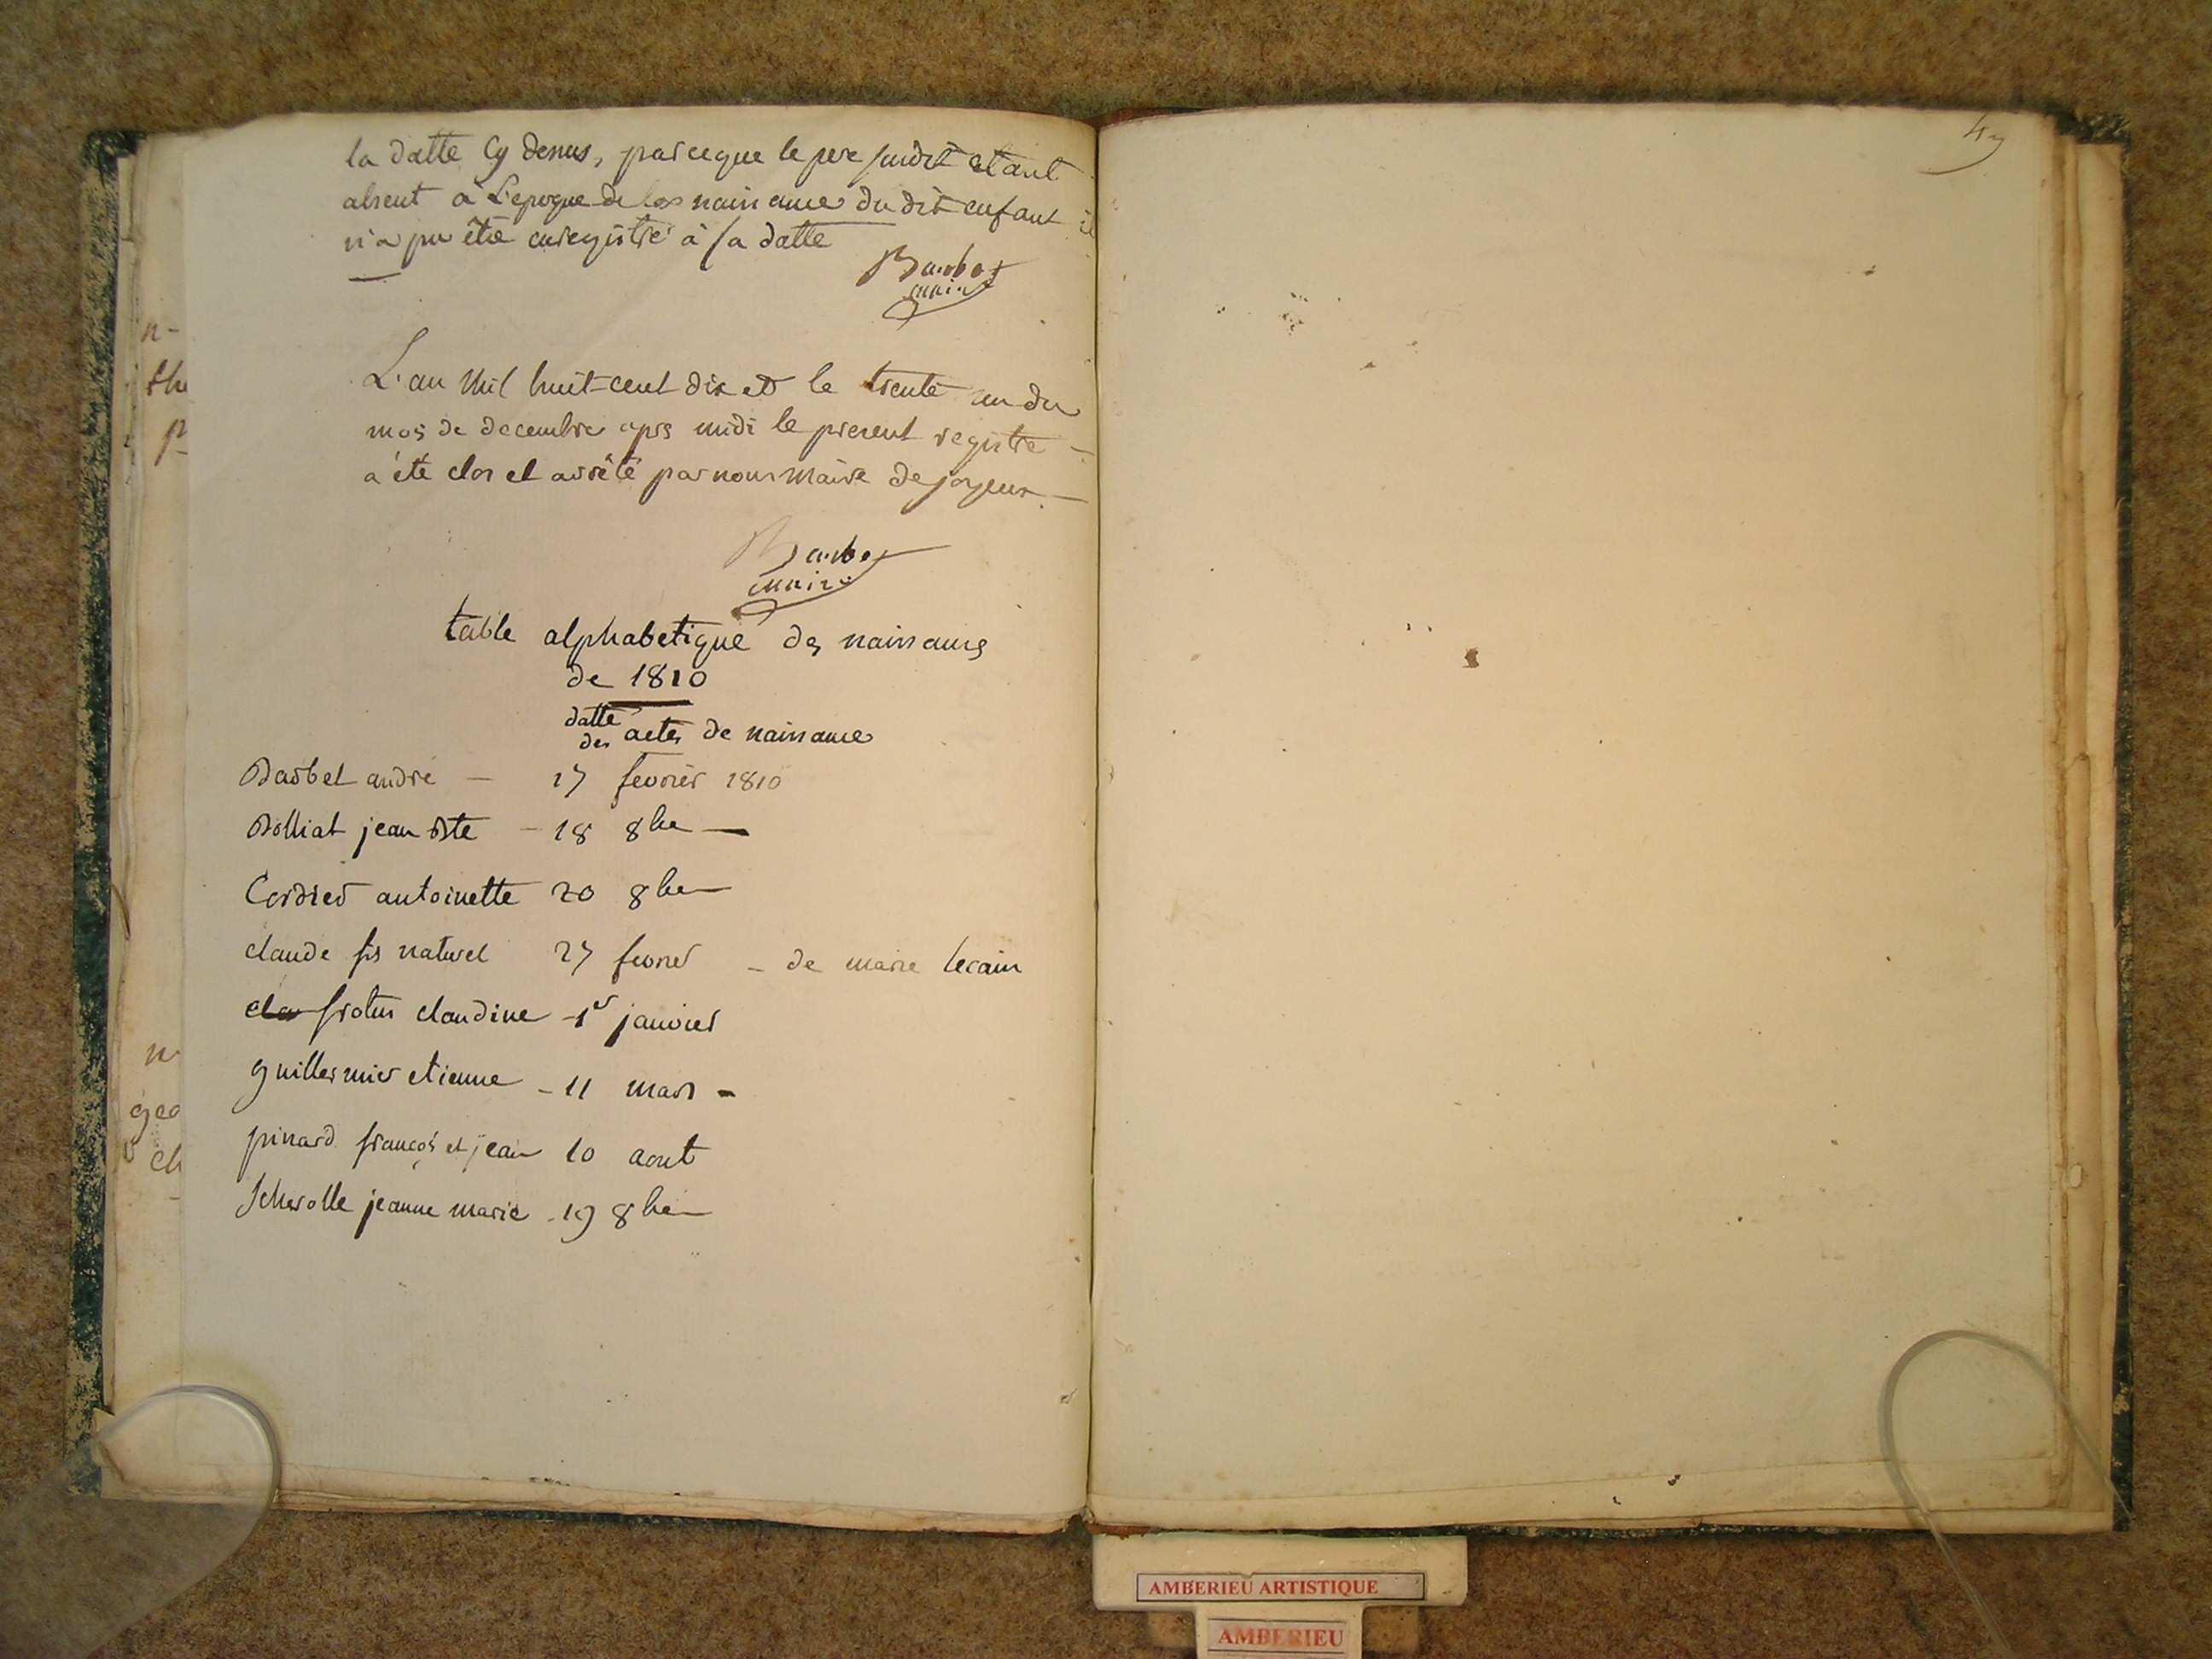 la datte cy denus, parceque le pere susdit etant
absent a L'epoque de la naissance du dit enfant il
n'a pu être enregistré à sa datte
Barbet
maire
L'an mil huit-cent dix et le trente un du
mois de decembre aprs midi le present registre
a été clos et arrêté par nous maire de joyeux
Barbet
maire
table alphabetique des naissances
de 1810
datte
des actes de naissance
Barbet andré - 17 fevrier 1810
Bolliat jean Bte - 18 8bre
Cordier antoinette 20 8bre
claude fis naturel 27 fevrier - de marie
frotin claudine - 1er janvier
guillermier etienne - 11 mars -
pinard françois et jean 10 aout
Scherolle jeanne marie - 19 8bre
n-
n
geo
ch
AMBERIEU ARTISTIQUE
AMBERIEU